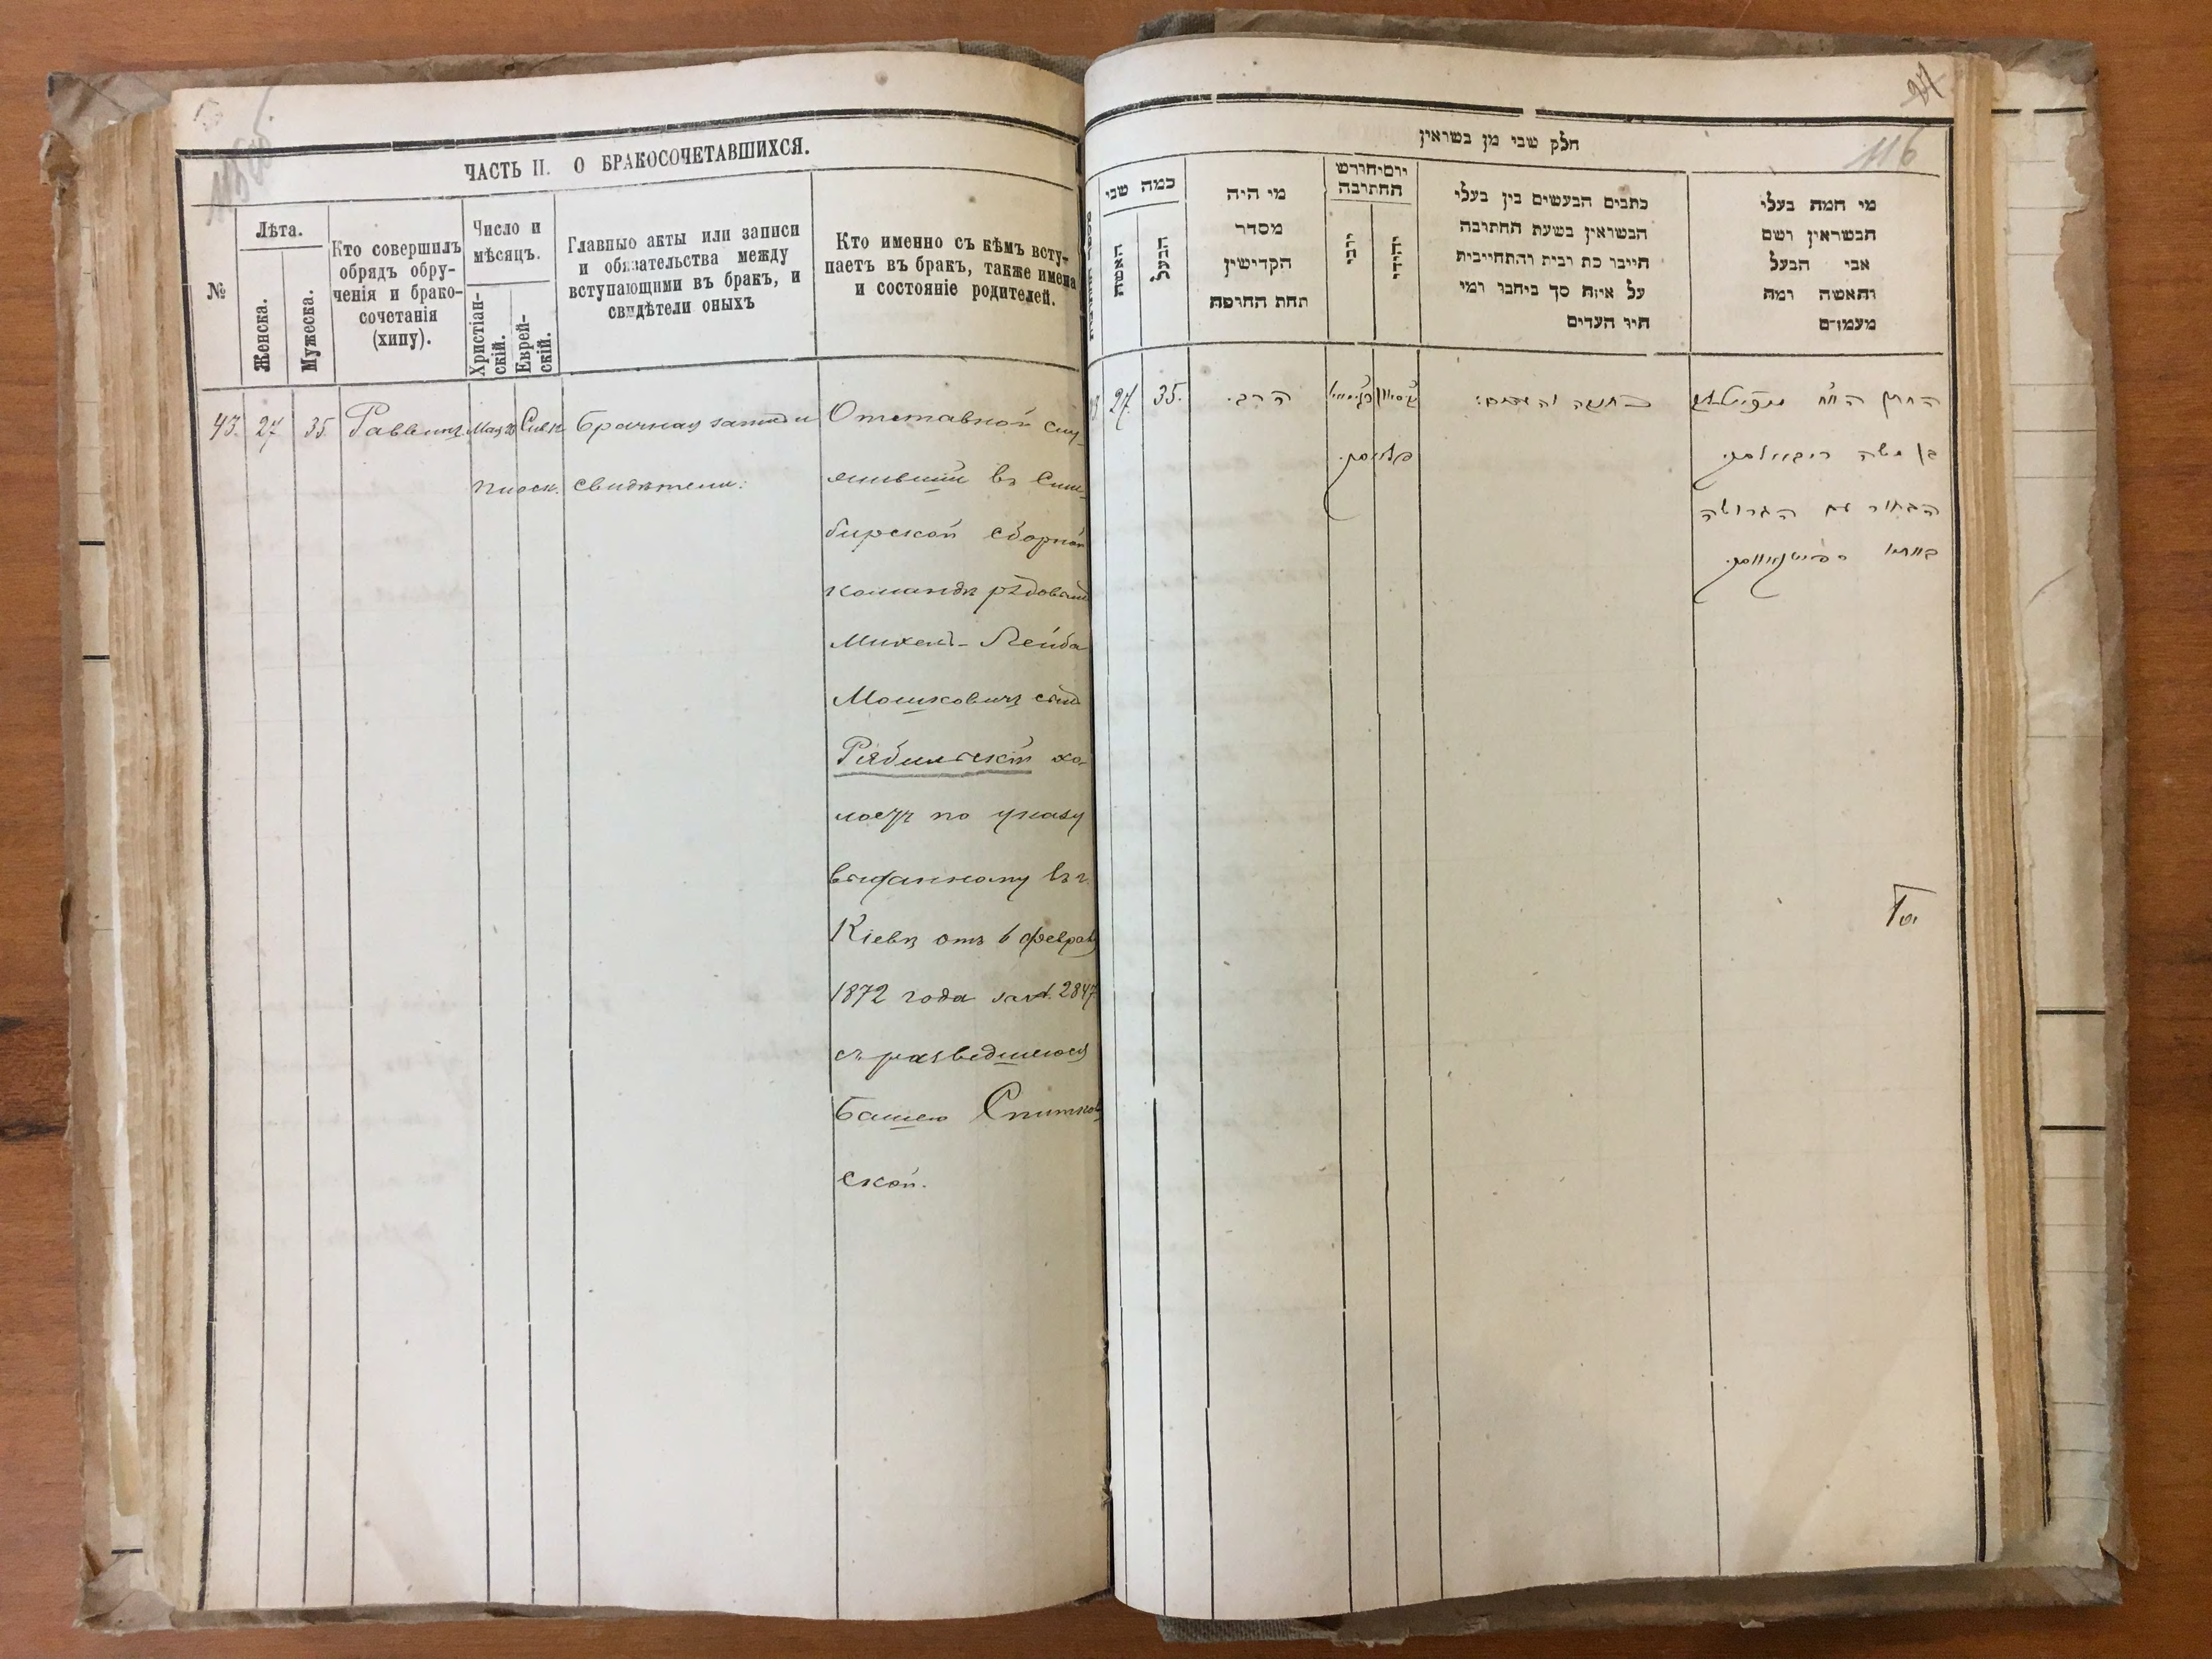 115 об.
ЧАСТЬ II. О БРАКОСОЧЕТАВШИХСЯ.
№
Лѣта.
Женска.
Мужеска.
Кто совершилъ
обрядъ обру-
ченія и брако-
сочетанія
(хипу).
Число и
мѣсяцъ.
Христіан-
скій.
Еврей-
скій.
Главныо акты или записи
и обязательства между
вступающими въ бракъ, и
свидѣтели оныхъ
Кто именно съ кѣмъ всту-
паетъ въ бракъ, также имена
и состояніе родителей.
43. 27 35 Раввинъ Брачная запись и
свидѣтели:
Отставной слу-
жившій въ Сим-
бирской сборной
командѣ рядовый
Михель-Лейба
Мошковичъ сынъ
Рябинскій хо-
лостъ по указу
выданному въ г.
Кіевѣ отъ 6 февраля
1872 года за № 2847
съ разведшеюся
Башею Спитков-
ской.
24
116
חלק שבי מן בשראין
כמה שבי
האשה
הבעל
מי היה
מסדר
הקדישין
תחת החופה
יום יחודש
החתיבה
יהודי
כתבים הבעשים בין בעלי
הבשראין בשעת החתיבה
חייבו כת רבית והתחייבית
על איזה סך ביחבו ומי
היו העדים
מי המה בעלי
הבשראין ושם
אבי הבעל
והאשה ומה
מעמדם
27. 35. הרב. כתובה ועדים:
בן משה
הבחור עם הגרושה